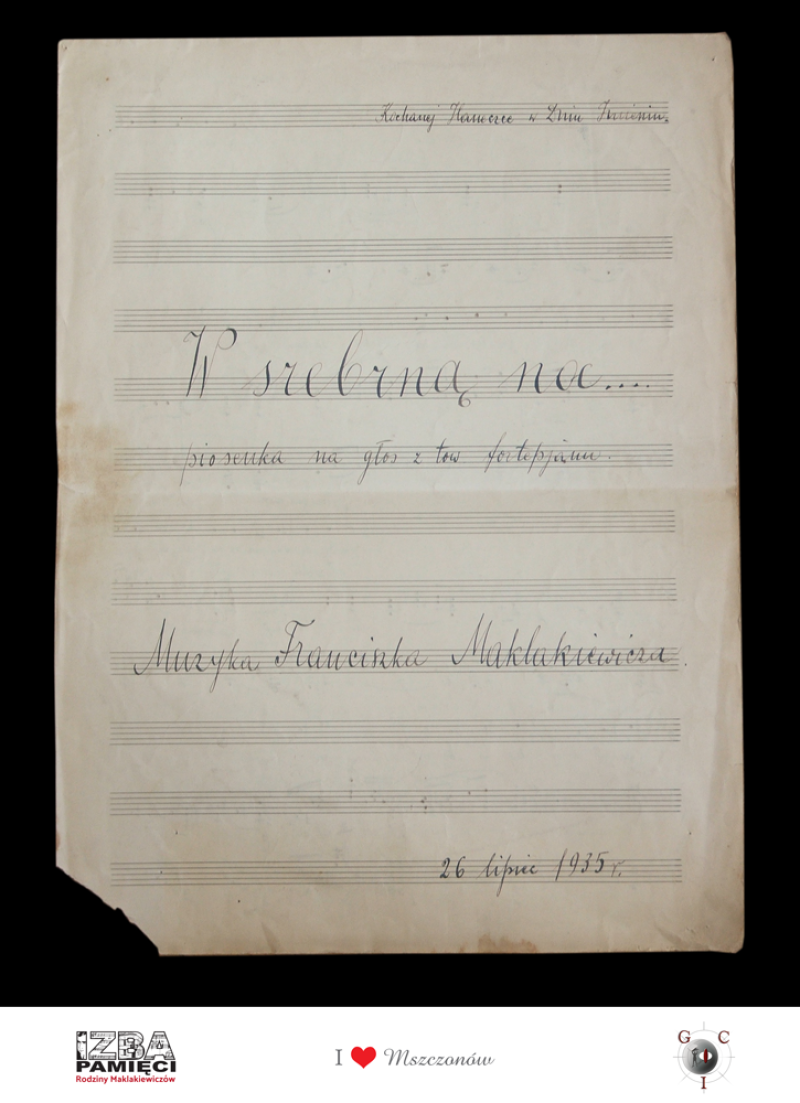 Kochanej Haneczce w Dniu Imienin.
W srebrną noc....
piosenka na głos z tow fortepjanu.
Muzyka Franciszka Maklakiewicza.
26 lipiec 1935 r.
IZBA
PAMIĘCI
Rodziny Maklakiewiczów
I ❤ Mszczonów
G C
I